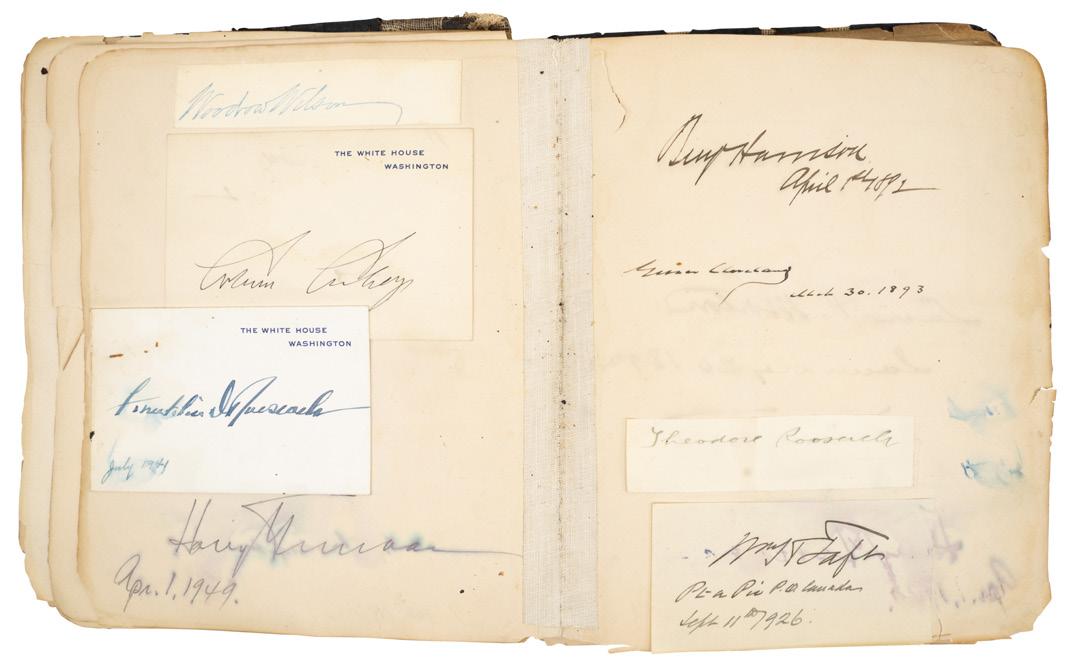 Woodrow Wilson
THE WHITE HOUSE
WASHINGTON
Calvin Coolidge
THE WHITE HOUSE
WASHINGTON
Franklin D Roosevelt
July 1941
Harry Truman
Apr. 1, 1949.
Benj Harrison
April 1st 1892
Grover Cleveland
Mch 30. 1893
Theodore Roosevelt
Wm H Taft
Pt a Pic P.Q. Canada
Sept 11th 1926.